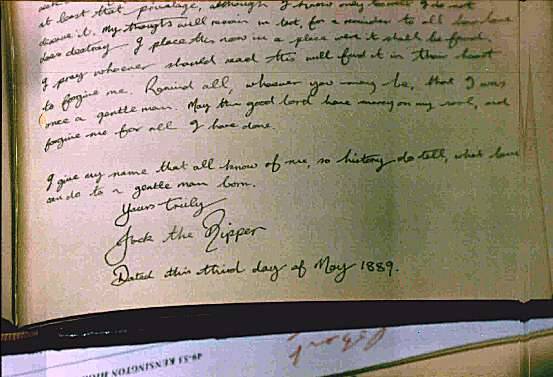 at least that privalage, although I know only I do not
deserve it. My thoughts will remain in tact, for a reminder to all how love
does destroy. I place this now in a place were it shall be found.
I pray whoever should read this will find it in their heart
to forgive me. Remind all, whoever you may be, that I was
once a gentle man. May the good lord have mercy on my soul, and
forgive me for all I have done.
I give my name that all know of me, so history do tell, what love
can do to a gentle man born.
Yours truly
Jack the Ripper
Dated this third day of May 1889.
49-53 KENSINGTON HIG